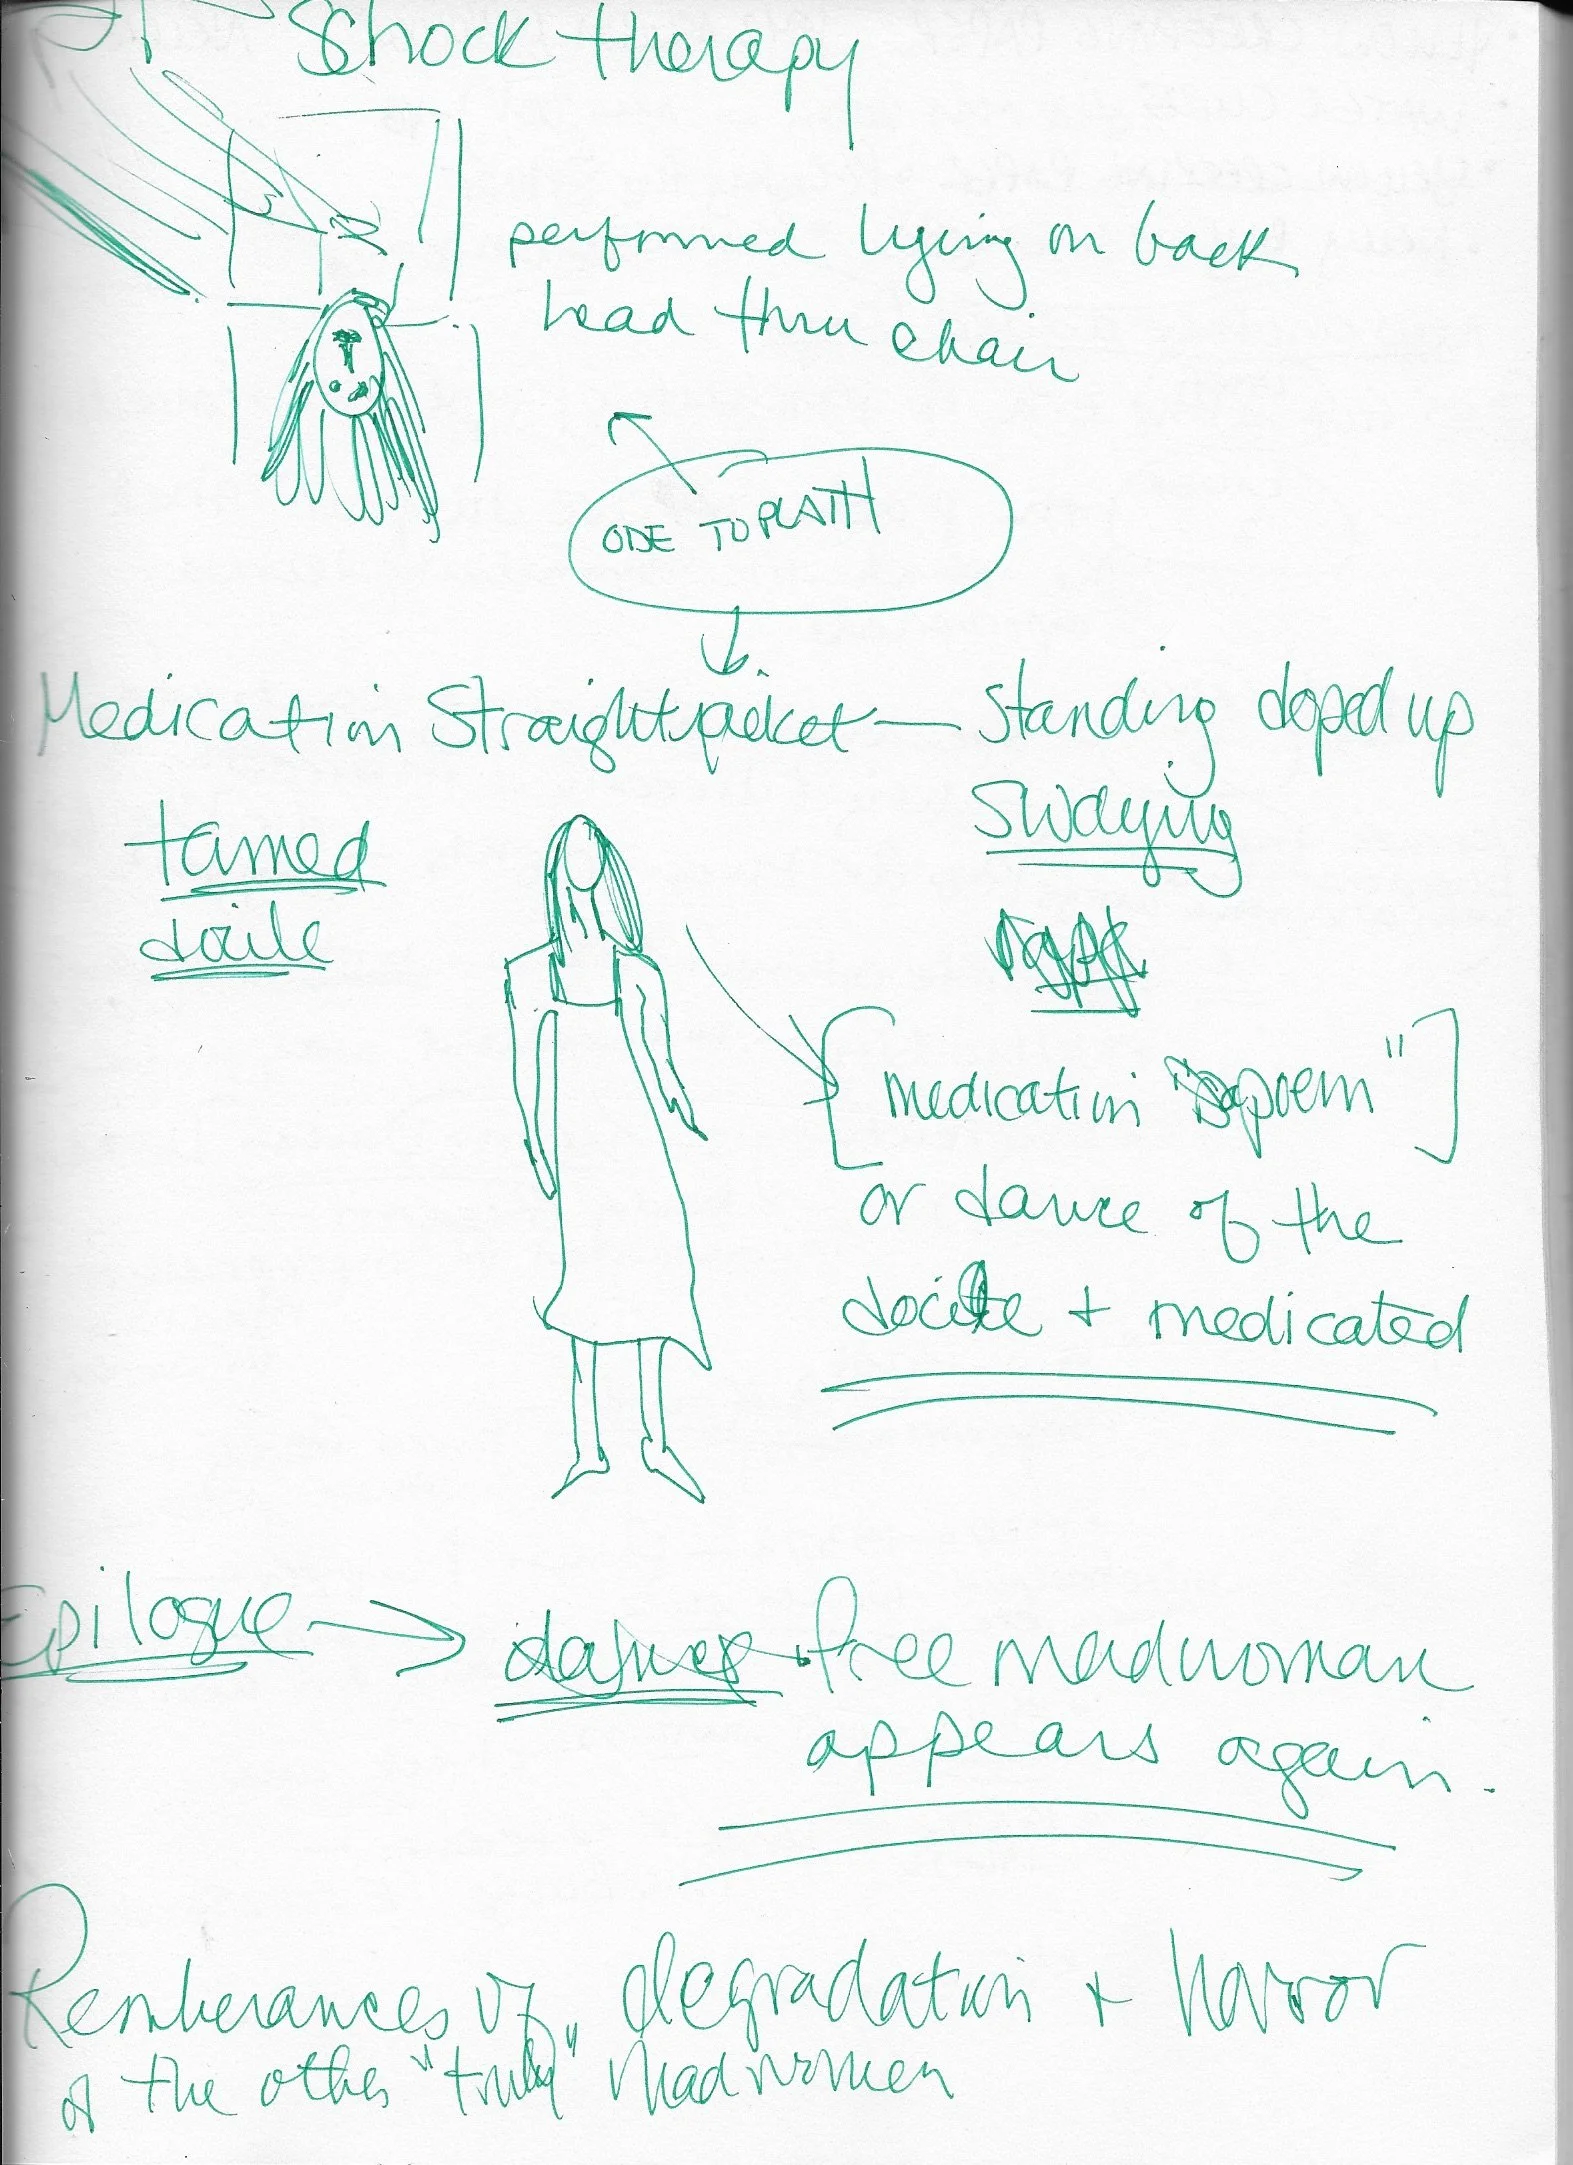 Schock therapy
performed lying on back
head thru chair
ODE TO PLATH
Medication Straightjacket — standing doped up
swaying
tamed
docile
[medication "poem"]
or dance of the
docile + medicated
Epilogue → dances . free madwoman
appears again.
Remberances of degradation + horror
of the other "truly" madwomen